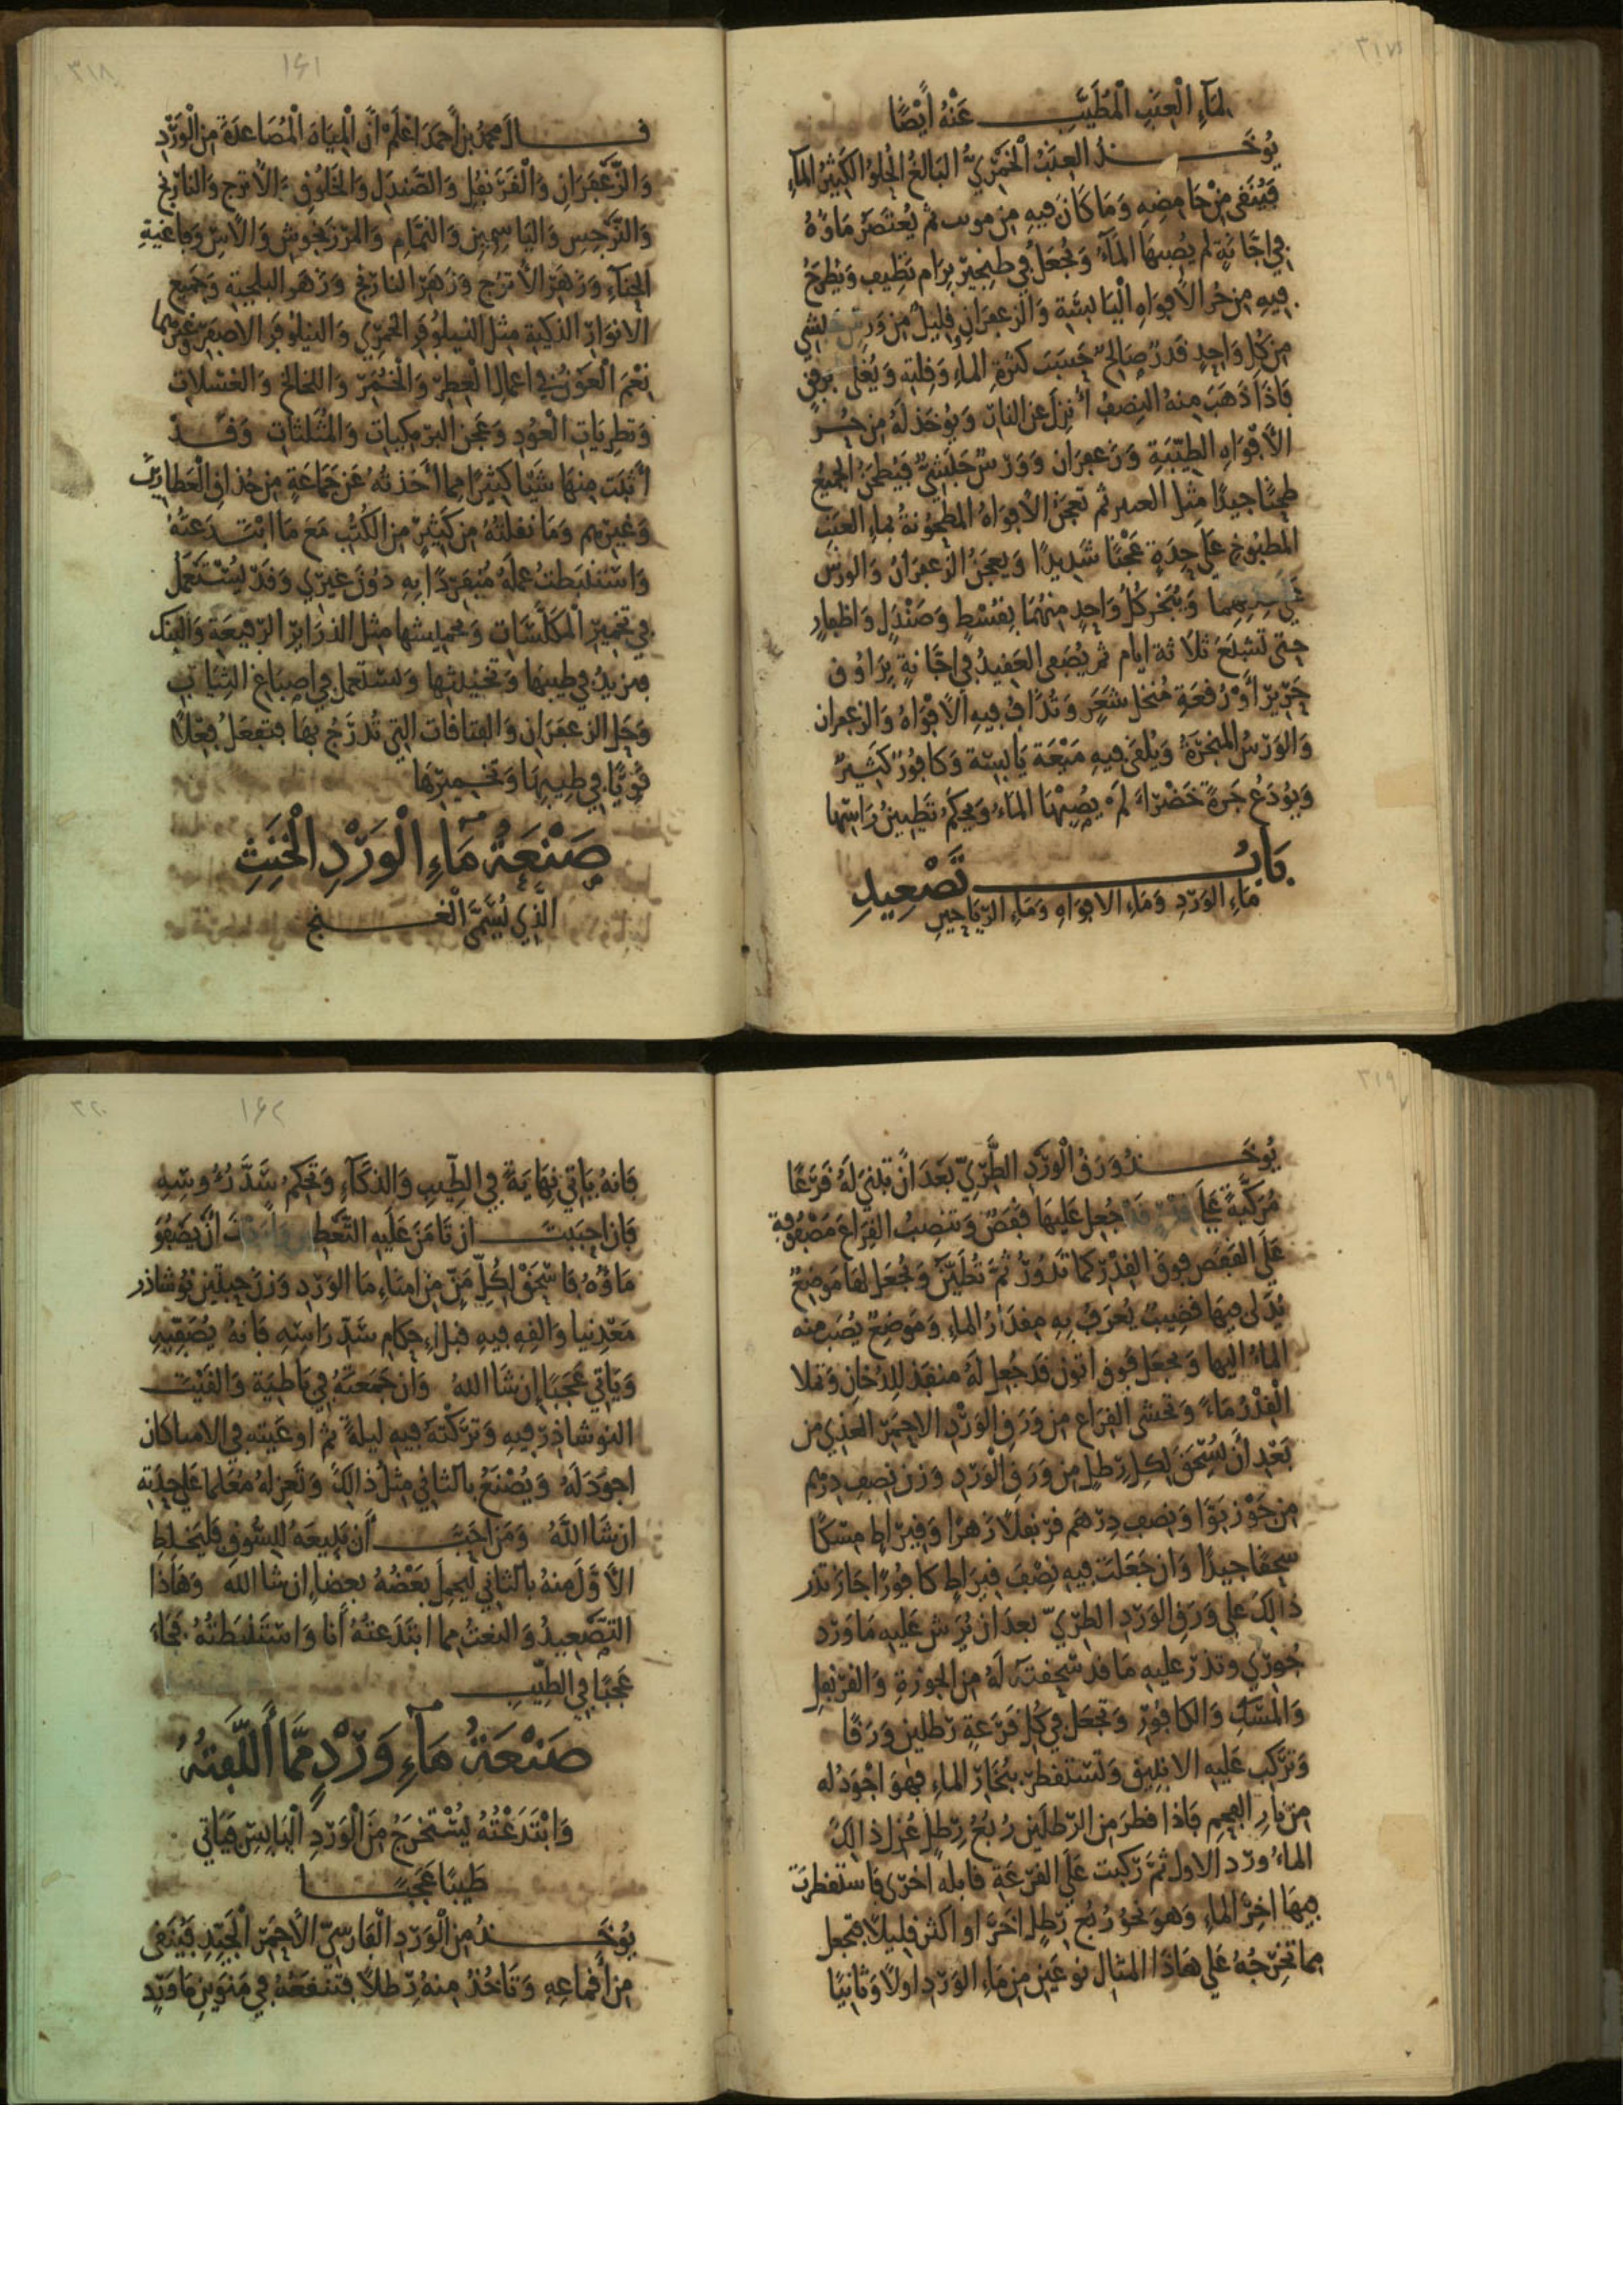 ٣١٧
لماء العنب المطيب عنه أيضا
يوخذ العنب الخمري البالغ الحلو الكثير الماء
فينقى من حامضه وما كان فيه من ثم يعتصر ماؤه
في اجانة لم يصبها الماء ويجعل في طنجير برام نظيف ويطرح
فيه من حر الافواه اليابسة والزعفران قليل من ورس حبشي
من كل واحد قدر صالح حسب كثرة الماء وقلته ويغلى برفق
فاذا ذهب منه النصف أنزل عن النار ويوخذ له من حر
الأفواه الطيبة وزعفران وورس حبشي فيطحن الجميع
طحنا جيدا مثل ثم تعجن الأفواه المطحونة بماء العنب
المطبوخ على حدة عجنا شديدا ويعجن الزعفران والورس
ويبخر كل واحد منهما بقسط وصندل واظفار
حتى تشبع ثلاثة ايام ثم يصفى العقيد في اجانة براووق
حرير أو رقعة منخل شعر وتداف فيه الأفواه والزعفران
والورس المبخرة ويلقى فيه ميعة يابسة وكافور كثير
ويودع جرة خضراء لم يصبها الماء ويحكم تطيين راسها
باب تصعيد
ماء الورد وماء الافواه وماء الرياحين
٣١٨
١٤١
قال محمد بن أحمد اعلم أن المياه المصاعدة من الورد
والزعفران والقرنفل والصندل والخلوق والأترج والنارنج
والنرجس والياسمين والنمام والمرزنجوش والآس وفاغية
الحناء وزهر الأترج وزهر النارنج وزهر البلجية وجميع
الانوار الذكية مثل النيلوفر الخمري والنيلوفر الاصفر وغيرهما
نعم العون في اعمال العطر والخمر واللخالخ والغسلات
وتطريات العود وعجن البرمكيات والمثلثات وقد
أثبت منها شيا كثيرا مما أخذته عن جماعة من حذاق العطارين
وغيرهم وما نقلته من كثير من الكتب مع ما ابتدعته
واستنبطت عمله منفردا به دون غيري وقد يستعمل
في تخمير المكلسات وتحميلها مثل الذراير الرفيعة والبنك
فتزيد في طيبها وتخنيثها وتستعمل في اصباغ الثياب
وحل الزعفران والفتاقات التي تدرج بها فتفعل فعلا
قويا في طيبها وتخميرها
صنعة ماء الورد الخنث
الذي يسمى الغنج
٣١٩
يوخذ ورق الورد الطري بعد أن تبنى له قرعا
مركبة على قدر قد جعل عليها قفص وتنصب القراع مصفوفة
على القفص فوق القدر كما تدور ثم تطين ويجعل لها موضع
يدلى فيها قضيب يعرف به مقدار الماء وموضع يصب منه
الماء اليها ويجعل فوق اتون قد جعل له منفذ للدخان وتملا
القدر ماء وتحشى القراع من ورق الورد الاحمر العذي من
بعد أن يسحق لكل رطل من ورق الورد وزن نصف درهم
من جوز بوا ونصف درهم قرنفلا زهرا وقيراط مسكا
سحقا جيدا وان جعلت فيه نصف قيراط كافورا جاز تذر
ذالك على ورق الورد الطري بعد ان يرش عليه ماورد
جوري وتذر عليه ما قد سحقته له من الجوزة والقرنفل
والمسك والكافور وتجعل في كل قرعة رطلين ورقا
وتركب عليه الانبيق وتستقطر ببخار الماء فهو اجود له
من نار الفحم فاذا قطر من الرطلين ربع رطل عزل ذالك
الماء ورد الاول ثم ركبت على القرعة قابله اخرى فاستقطرت
فيها اخر الماء وهو نحو ربع رطل اخر او اكثر قليلا فتجعل
مما تخرجه على هاذا المثال نوعين من ماء الورد اولا وثانيا
٣٢٠
١٤٢
فانه ياتي نهاية في الطيب والذكاء وتحكم سد رءوسه
فان احببت ان تامن عليه التعطن وأردت أن يصفو
ماؤه فاسحق لكل من من امناء ما الورد وزن حبتين نوشاذر
معدنيا والقه فيه قبل احكام سد راسه فانه يصفيه
وياتي عجبا إن شا الله وان جمعته في باطية والقيت
النوشاذر فيه وتركته فيه ليلة ثم اوعيته في الامساكان
اجود له ويصنع بالثاني مثل ذالك وتعزله معلما على حدته
ان شا الله ومن احب أن يبيعه للسوق فليخلط
الأول منه بالثاني ليحمل بعضه بعضا إن شا الله وهاذا
التصعيد والنعت مما ابتدعته أنا واستنبطته فجاء
عجبا في الطيب
صنعة ماء ورد مما ألفته
وابتدعته يستخرج من الورد اليابس فياتي
طيبا عجبا
يوخذ من الورد الفارسي الأحمر الجيد فينقى
من أقماعه وتاخذ منه رطلا فتنقعه في منوين ماورد